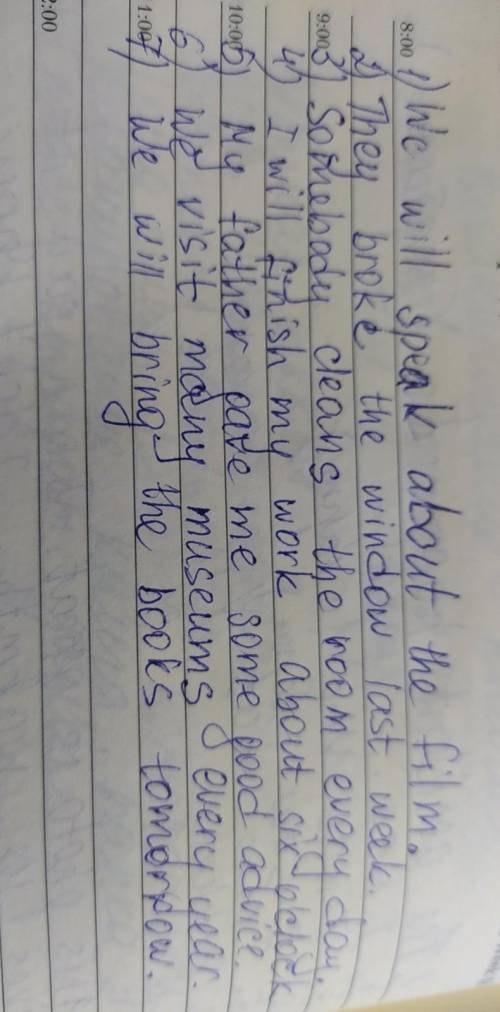 8:00 1) We will speak about the film.
2) They broke the window last week.
9:00 3) Somebody cleans the room every day.
4) I will finish my work about six o'clock
10:00 5) My father gave me some good advice.
6) We visit many museums every year.
1:00 7) We will bring the books tomorrow.
2:00